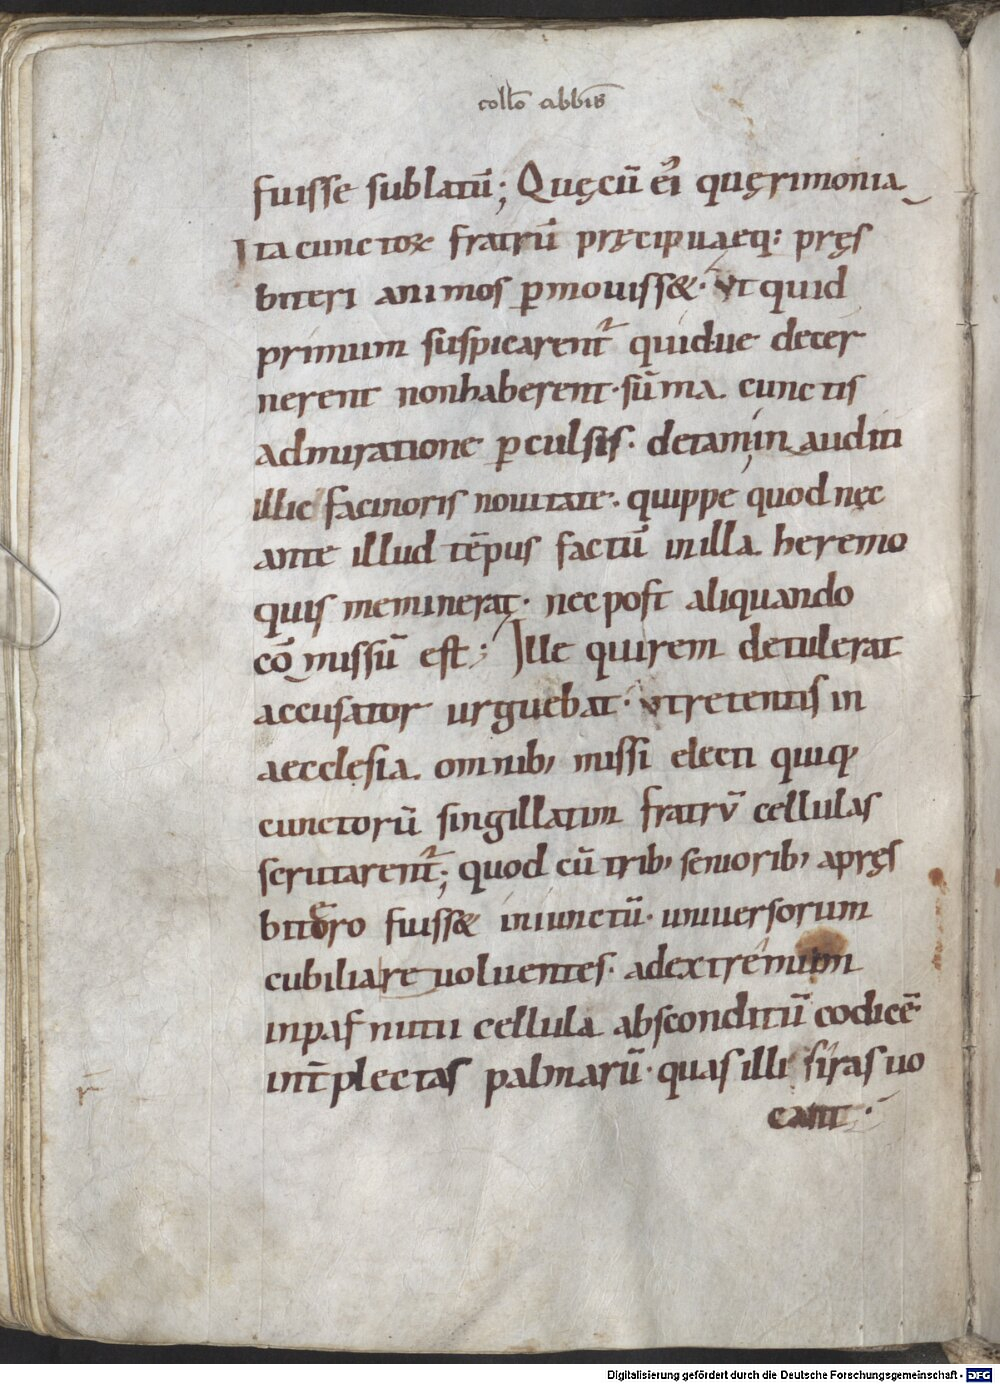 collo͞ abbis͞
fuisse sublatū; Quęcū ei᷒ quęrimonia
Ita cunctoꝝ fratrū pręcipuaeq: pręs
biteri animos ꝑmouiss&· Vt quid
primum suspicarent᷑ quidue decer
nerent nonhaberent· sūma cunctis
admiratione ꝑculsis· detam in auditi
illic facinoris nouitate· quippe quod nec
ante illud tēpus factū inilla heremo
quis meminerat· necpost aliquando
cōmissū est; Ille quirem detulerat
accusator urguebat· vtretentis in
aecclesia omnib; missi electi quiq;
cunctorū singillatim fratrū cellulas
scrutarent᷑; quod cū trib; seniorib; apręs
bitero fuiss& iniunctū· uniuersorum
cubilia reuoluentes· adextremum
inpafnutii cellula absconditū codicē
int̄ plectas palmarū· quas illi siras uo
cant·
Digitalisierung gefördert durch die Deutsche Forschungsgemeinschaft - DFG